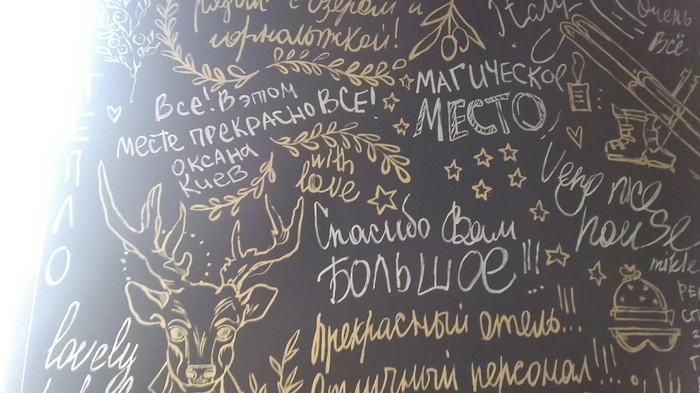 рядом с озером и
горнолыжкой!
Italy
Очень
Всё
Все! В этом
месте прекрасно ВСЕ!
Оксана
Киев
МАГИЧЕСКОЕ
МЕСТО
with
love
Very nice
house
Спасибо Вам
БОЛЬШОЕ!!!
ТЕПЛО
Прекрасный отель...!!!
Отличный персонал!!!
lovely